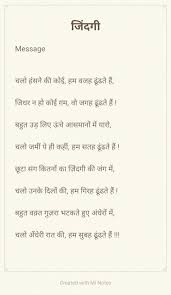 जिंदगी
Message
चलो हंसने की कोई, हम वजह ढूंडते हैं,
जिधर न हो कोई ग़म, वो जगह ढूंडते हैं !
बहुत उड़ लिए ऊंचे आसमानों में यारो,
चलो जमीं पे ही कहीं, हम सतह ढूंडते हैं !
छूटा संग कितनों का ज़िंदगी की जंग में,
चलो उनके दिलों की, हम गिरह ढूंडते हैं !
बहुत वक़्त गुज़रा भटकते हुए अंधेरों में,
चलो अँधेरी रात की, हम सुबह ढूंडते हैं !!!
Created with Mi Notes